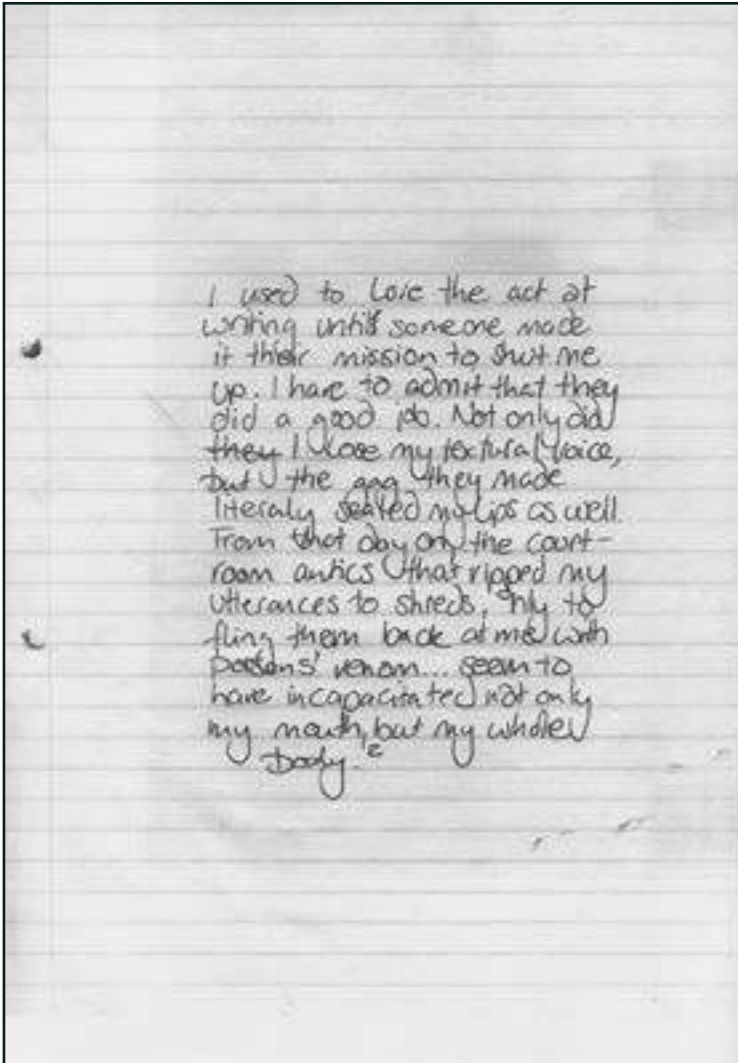 I used to love the act of
writing until someone made
it their mission to shut me
up. I have to admit that they
did a good job. Not only did
they I lose my textural voice,
but the gag they made
literaly sealed my lips as well.
From that day on, the court-
room antics that ripped my
utterances to shreds, to
fling them back at me with
venom... seem to
have incapacitated not only
my mouth, but my whole
body.²